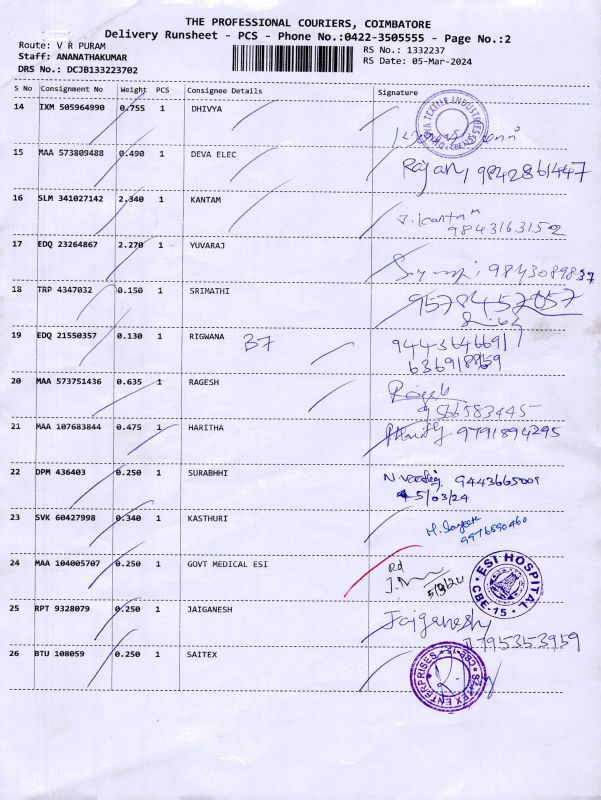 THE PROFESSIONAL COURIERS, COIMBATORE
Delivery Runsheet - PCS - Phone No.:0422-3505555 - Page No.:2
Route: V R PURAM
Staff: ANANATHAKUMAR
DRS No.: DCJB133223702
RS No.: 1332237
RS Date: 05-Mar-2024
S No Consignment No Weight PCS Consignee Details Signature
14 IXM 505964990 0.755 1 DHIVYA
15 MAA 573809488 0.490 1 DEVA ELEC Rajan, 9842861447
16 SLM 341027142 2.340 1 KANTAM J. Kantam
9843163152
17 EDQ 23264867 2.270 1 YUVARAJ
18 TRP 4347032 0.150 1 SRIMATHI 9578457057
19 EDQ 21550357 0.130 1 RIGWANA B7
20 MAA 573751436 0.635 1 RAGESH Ragesh
9566583445
21 MAA 107683844 0.475 1 HARITHA 9791894295
22 DPM 436403 0.250 1 SURABHHI 9443665009
5/03/24
23 SVK 60427998 0.340 1 KASTHURI
24 MAA 104005707 0.250 1 GOVT MEDICAL ESI Rd
ESI HOSPITAL
CBE-15
25 RPT 9328079 0.250 1 JAIGANESH Jaiganesh
7795353959
26 BTU 108059 0.250 1 SAITEX